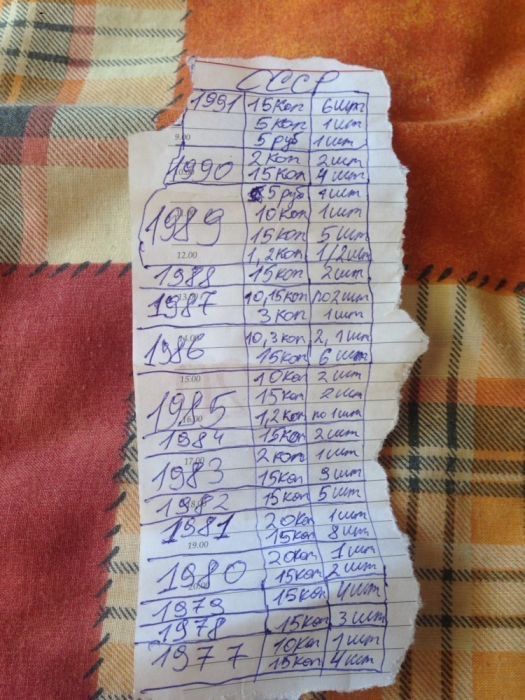 СССР
1991 15коп 6шт
5коп 1шт
9.00 5руб 1шт
2коп 2шт
1990 15коп 4шт
5руб 4шт
1989 10коп 1шт
15коп 5шт
12.00 1,2коп 1/2шт
1988 15коп 2шт
1987 10,15коп по2шт
3коп 1шт
10,3коп 2,1шт
1986 15коп 6шт
15.00 10коп 2шт
15коп 2шт
1985 1,2коп по 1шт
1984 15коп 2шт
17.00 2коп 1шт
1983 15коп 3шт
1982 15коп 5шт
1981 20коп 1шт
19.00 15коп 8шт
20коп 1шт
1980 15коп 2шт
1979 15коп 4шт
1978 15коп 3шт
1977 10коп 1шт
15коп 4шт